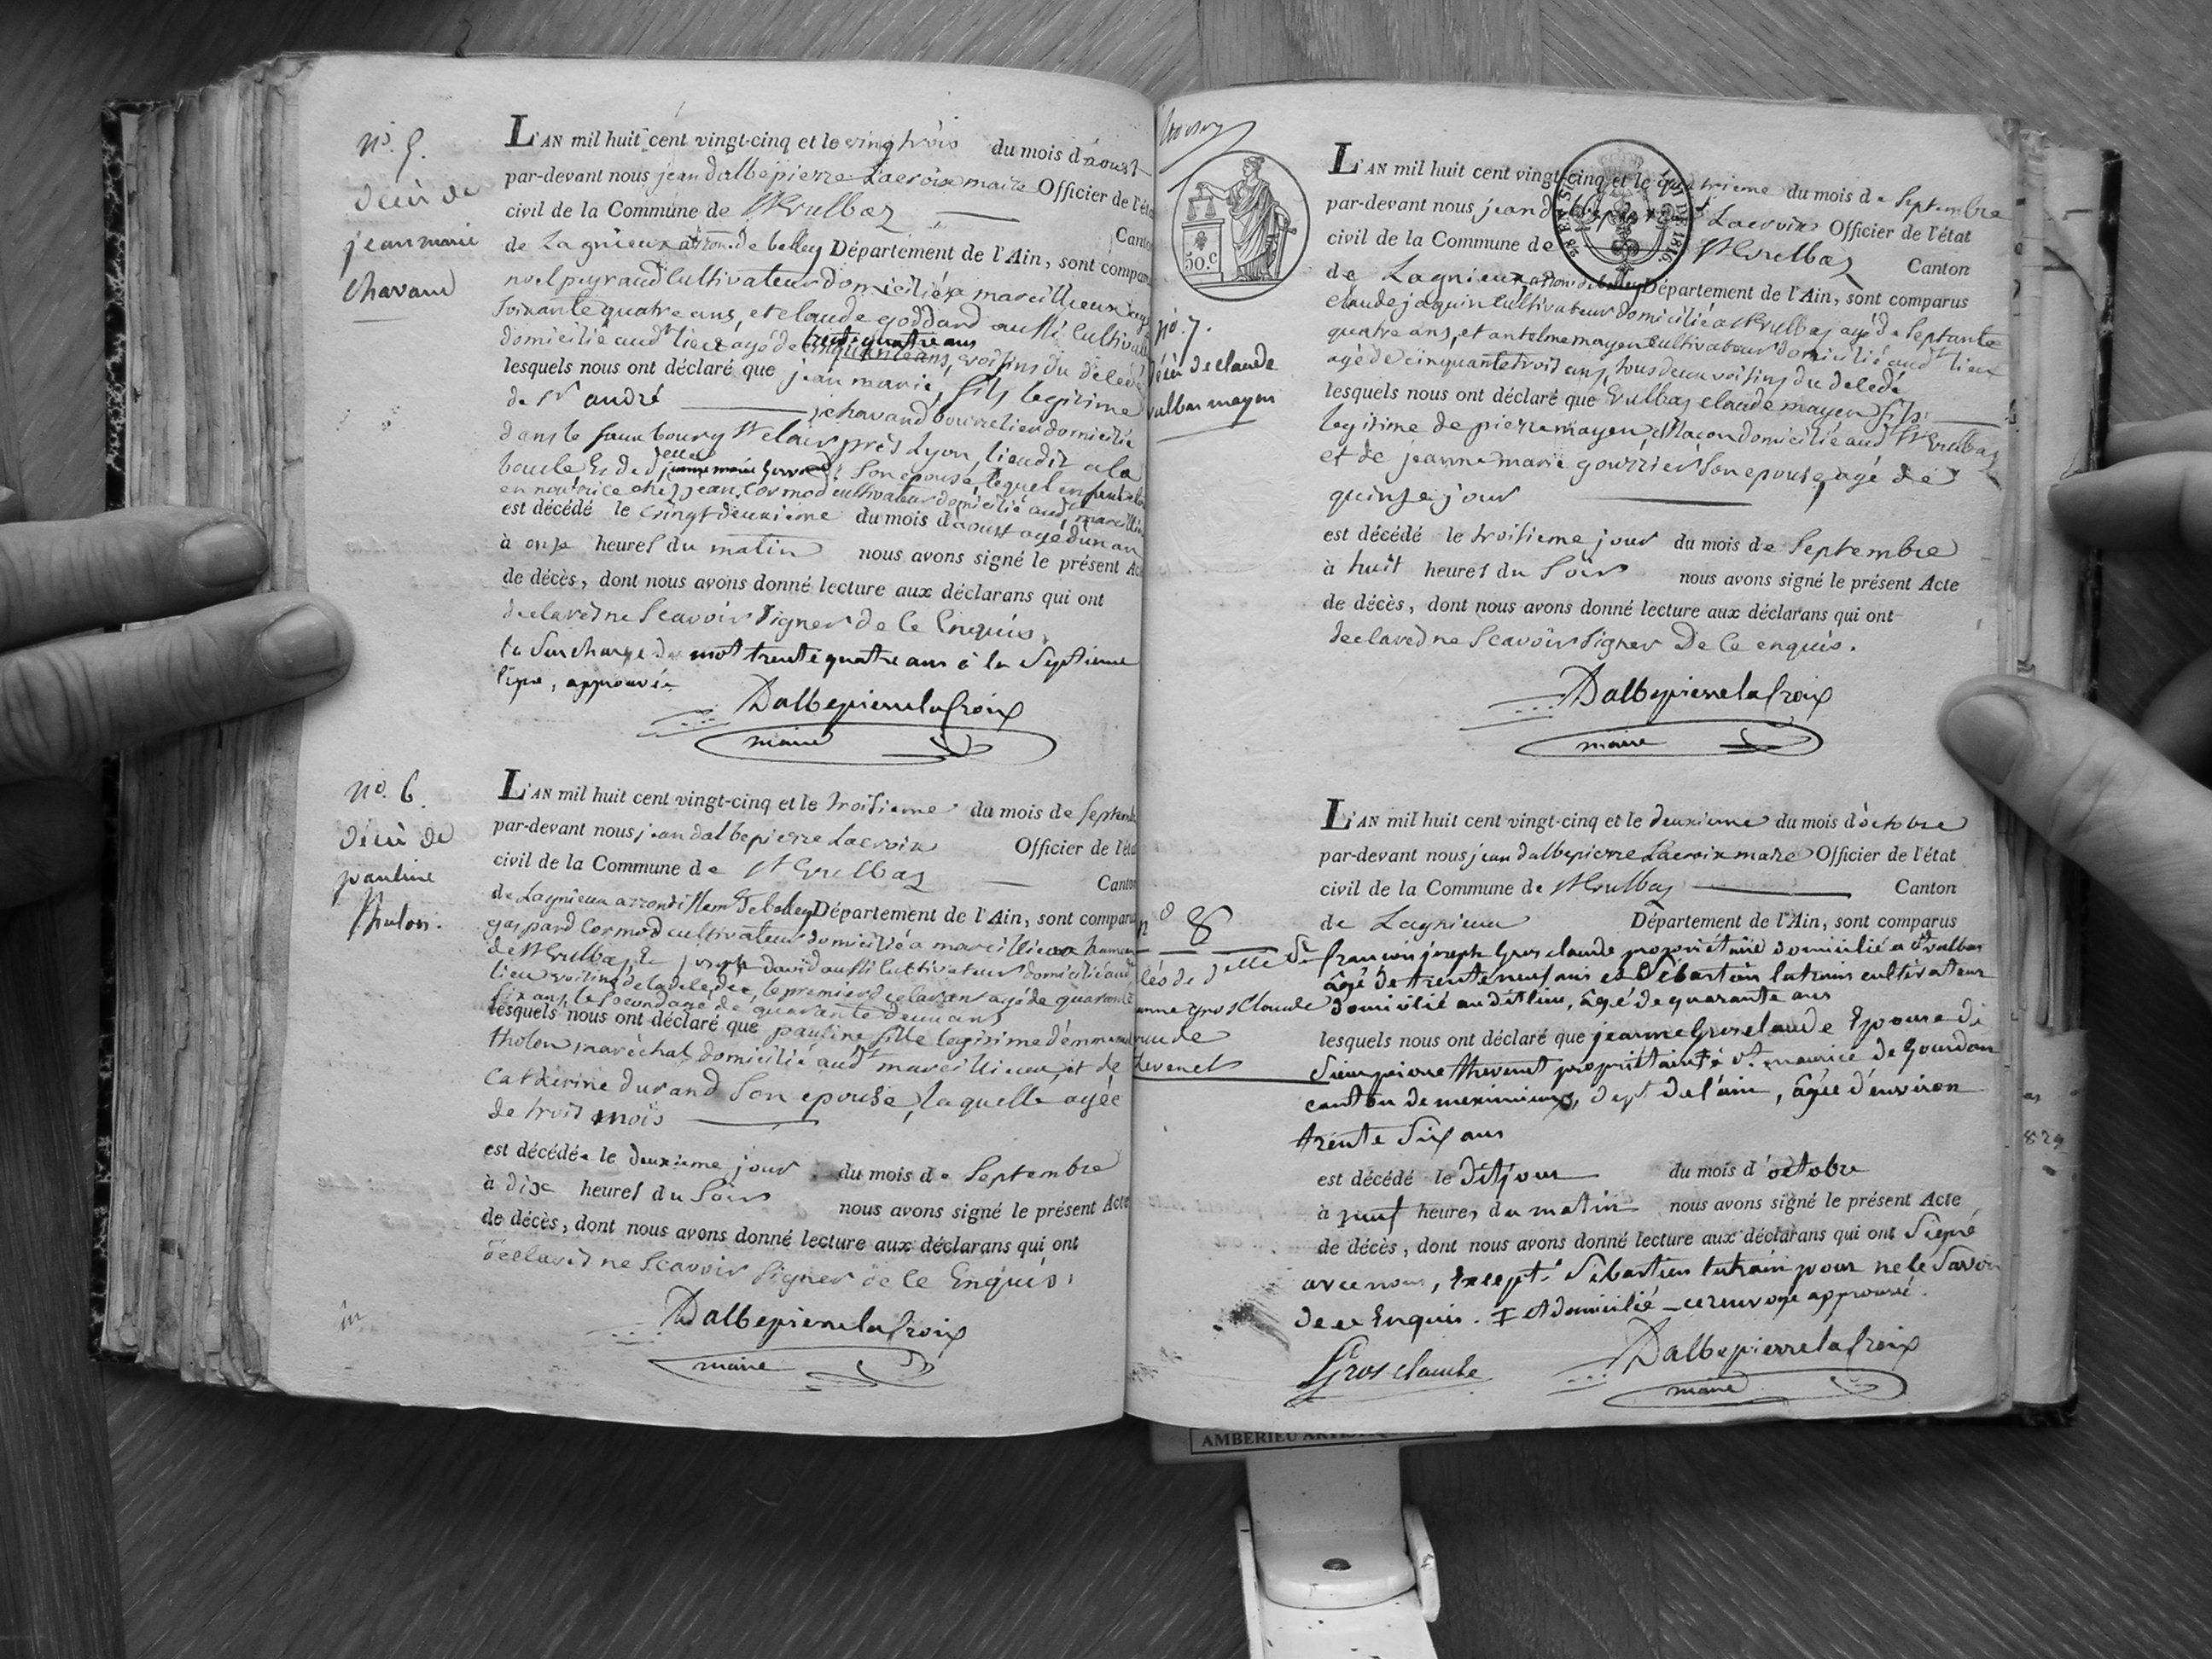 no. 5.
décès de
jean marie
Chavand
L'AN mil huit cent vingt-cinq et le vingt trois du mois d'aoust
par-devant nous jean dalbepierre Lacroix maire Officier de l'éta
civil de la Commune de St Vulbaz Canto
de Lagnieux arron. de belley Département de l'Ain, sont compar
noel peyraud Cultivateur domicilié a marcillieux agé
soixante quatre ans, et claude goddard aussi Cultivat
domicilié aud't lieux agé de trente quatre ans, voisins du décédé
lesquels nous ont déclaré que jean marie, fils legitime
de Sr andré chavand bourrelier domicilié
dans le faux bourg St clair près Lyon, lieu dit a la
boucle Et de d'elle jeanne marie son epouse, lequel enfant
en nourrice chez jean Cormod cultivateur domicilié aud't marcillieu
est décédé le Vingt deuxième du mois d'aoust agé d'un an
à onze heures du matin nous avons signé le présent Ac
de décès, dont nous avons donné lecture aux déclarans qui ont
declaré ne Scavoir Signer de Ce Enquis.
la Surcharge du mot trente quatre ans à la Septieme
ligne, approuvée
Dalbepierrelacroix
maire
no. 6.
décès de
pauline
Tholon.
L'AN mil huit cent vingt-cinq et le troisieme du mois de Septemb
par-devant nous jean dalbepierre Lacroix Officier de l'éta
civil de la Commune de St Vulbaz Canto
de Lagnieux arrondissem't de belley Département de l'Ain, sont comparu
gaspard Cormod cultivateur domicilié a marcillieux hameau
de St Vulbaz, Et joseph david aussi Cultivateur domicilié aud't
lieu voisins de la décédée, le premier declarant agé de quarante
six ans, le Second agé de quarante deux ans
lesquels nous ont déclaré que pauline fille legitime d'emmanuel
tholon maréchal domicilié aud't marcillieux, et de
Catherine durand Son epouse, laquelle agée
de trois mois
est décédée le deuxieme jour du mois de Septembre
à dix heures du Soir nous avons signé le présent Acte
de décès, dont nous avons donné lecture aux déclarans qui ont
déclaré ne Scavoir Signer de Ce Enquis.
Dalbepierrelacroix
maire
50.C
no. 7.
décès de claude
vulbas mayen
L'AN mil huit cent vingt-cinq et le quatrieme du mois de Septembre
par-devant nous jean dalbepierre Lacroix Officier de l'état
civil de la Commune de St Vulbaz Canton
de Lagnieux, arron. de belley Département de l'Ain, sont comparus
claude jaquin Cultivateur domicilié a St Vulbaz agé de Septante
quatre ans, et antelme mayen Cultivateur domicilié aud't lieu
agé de cinquante trois ans, tous deux voisins du décédé
lesquels nous ont déclaré que Vulbaz claude mayen fils
legitime de pierre mayen, Maçon domicilié aud't St Vulbaz
et de jeanne marie gourrier Son epouse, agé de
quinze jour
est décédé le troisieme jour du mois de Septembre
à huit heures du Soir nous avons signé le présent Acte
de décès, dont nous avons donné lecture aux déclarans qui ont
declaré ne Scavoir Signer De Ce enquis.
Dalbepierrelacroix
maire
no 8
décès de d'elle
jeanne Gros Claude
thevenet
L'AN mil huit cent vingt-cinq et le deuxieme du mois d'octobre
par-devant nous jean dalbepierre Lacroix maire Officier de l'état
civil de la Commune de St Vulbaz Canton
de Lagnieux Département de l'Ain, sont comparus
Sr françois joseph Gros claude proprietaire domicilié a St Vulbas
âgé de trente neuf ans et Sébastien lutrain cultivateur
domicilié au dit lieu, âgé de quarante ans
lesquels nous ont déclaré que jeanne Gros claude Epouse de
Sieur pierre thevenet propriétaire à St maurice de Gourdan
canton de meximieux, dept de l'ain, âgée d'environ
trente Six ans
est décédé le Dit jour du mois d'octobre
à neuf heures du matin nous avons signé le présent Acte
de décès, dont nous avons donné lecture aux déclarans qui ont Signé
avec nous, Excepté Sébastien lutrain pour ne le Savoir
de ce Enquis. ‡ et domicilié — ce renvoye approuvé.
Gros claude
Dalbepierrelacroix
maire
AMBERIEU ARTISTIQUE